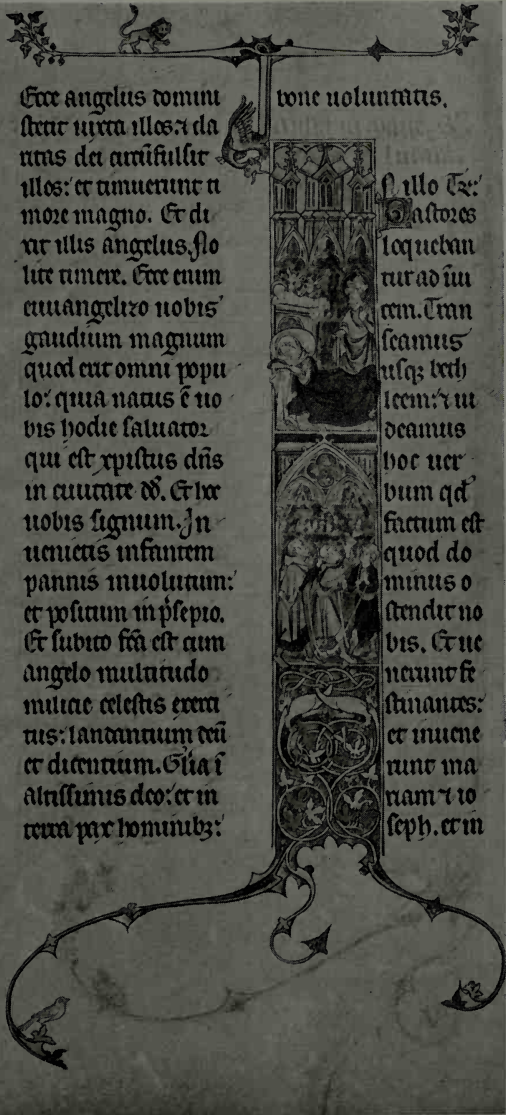 Ecce angelus domini
stetit iuxta illos: ⁊ cla
ritas dei circūfulsit
illos: et timuerunt ti
more magno. Et di
xit illis angelus. No
lite timere. Ecce enim
euuangelizo uobis
gaudium magnum
quod erit omni popu
lo: quia natus ē uo
bis hodie saluator
qui est xpistus dn̄s
in ciuitate dd̄. Et hoc
uobis signum. In
uenietis infantem
pannis inuolutum:
et positum in p̄sepio.
Et subito fc̄a est cum
angelo multitudo
milicie celestis exerci
tus: laudantium deū
et dicentium. Glīa ī
altissimis deo: et in
terra pax hominibꝫ:
bone uoluntatis.
N illo Tꝛ:
Pastores
loqueban
tur ad īui
cem. Tran
seamus
usqꝫ beth
leem: ⁊ ui
deamus
hoc uer
bum qd̄
factum est
quod do
minus o
stendit no
bis. Et ue
nerunt fe
stinantes:
et inuene
runt ma
riam ⁊ io
seph. et in